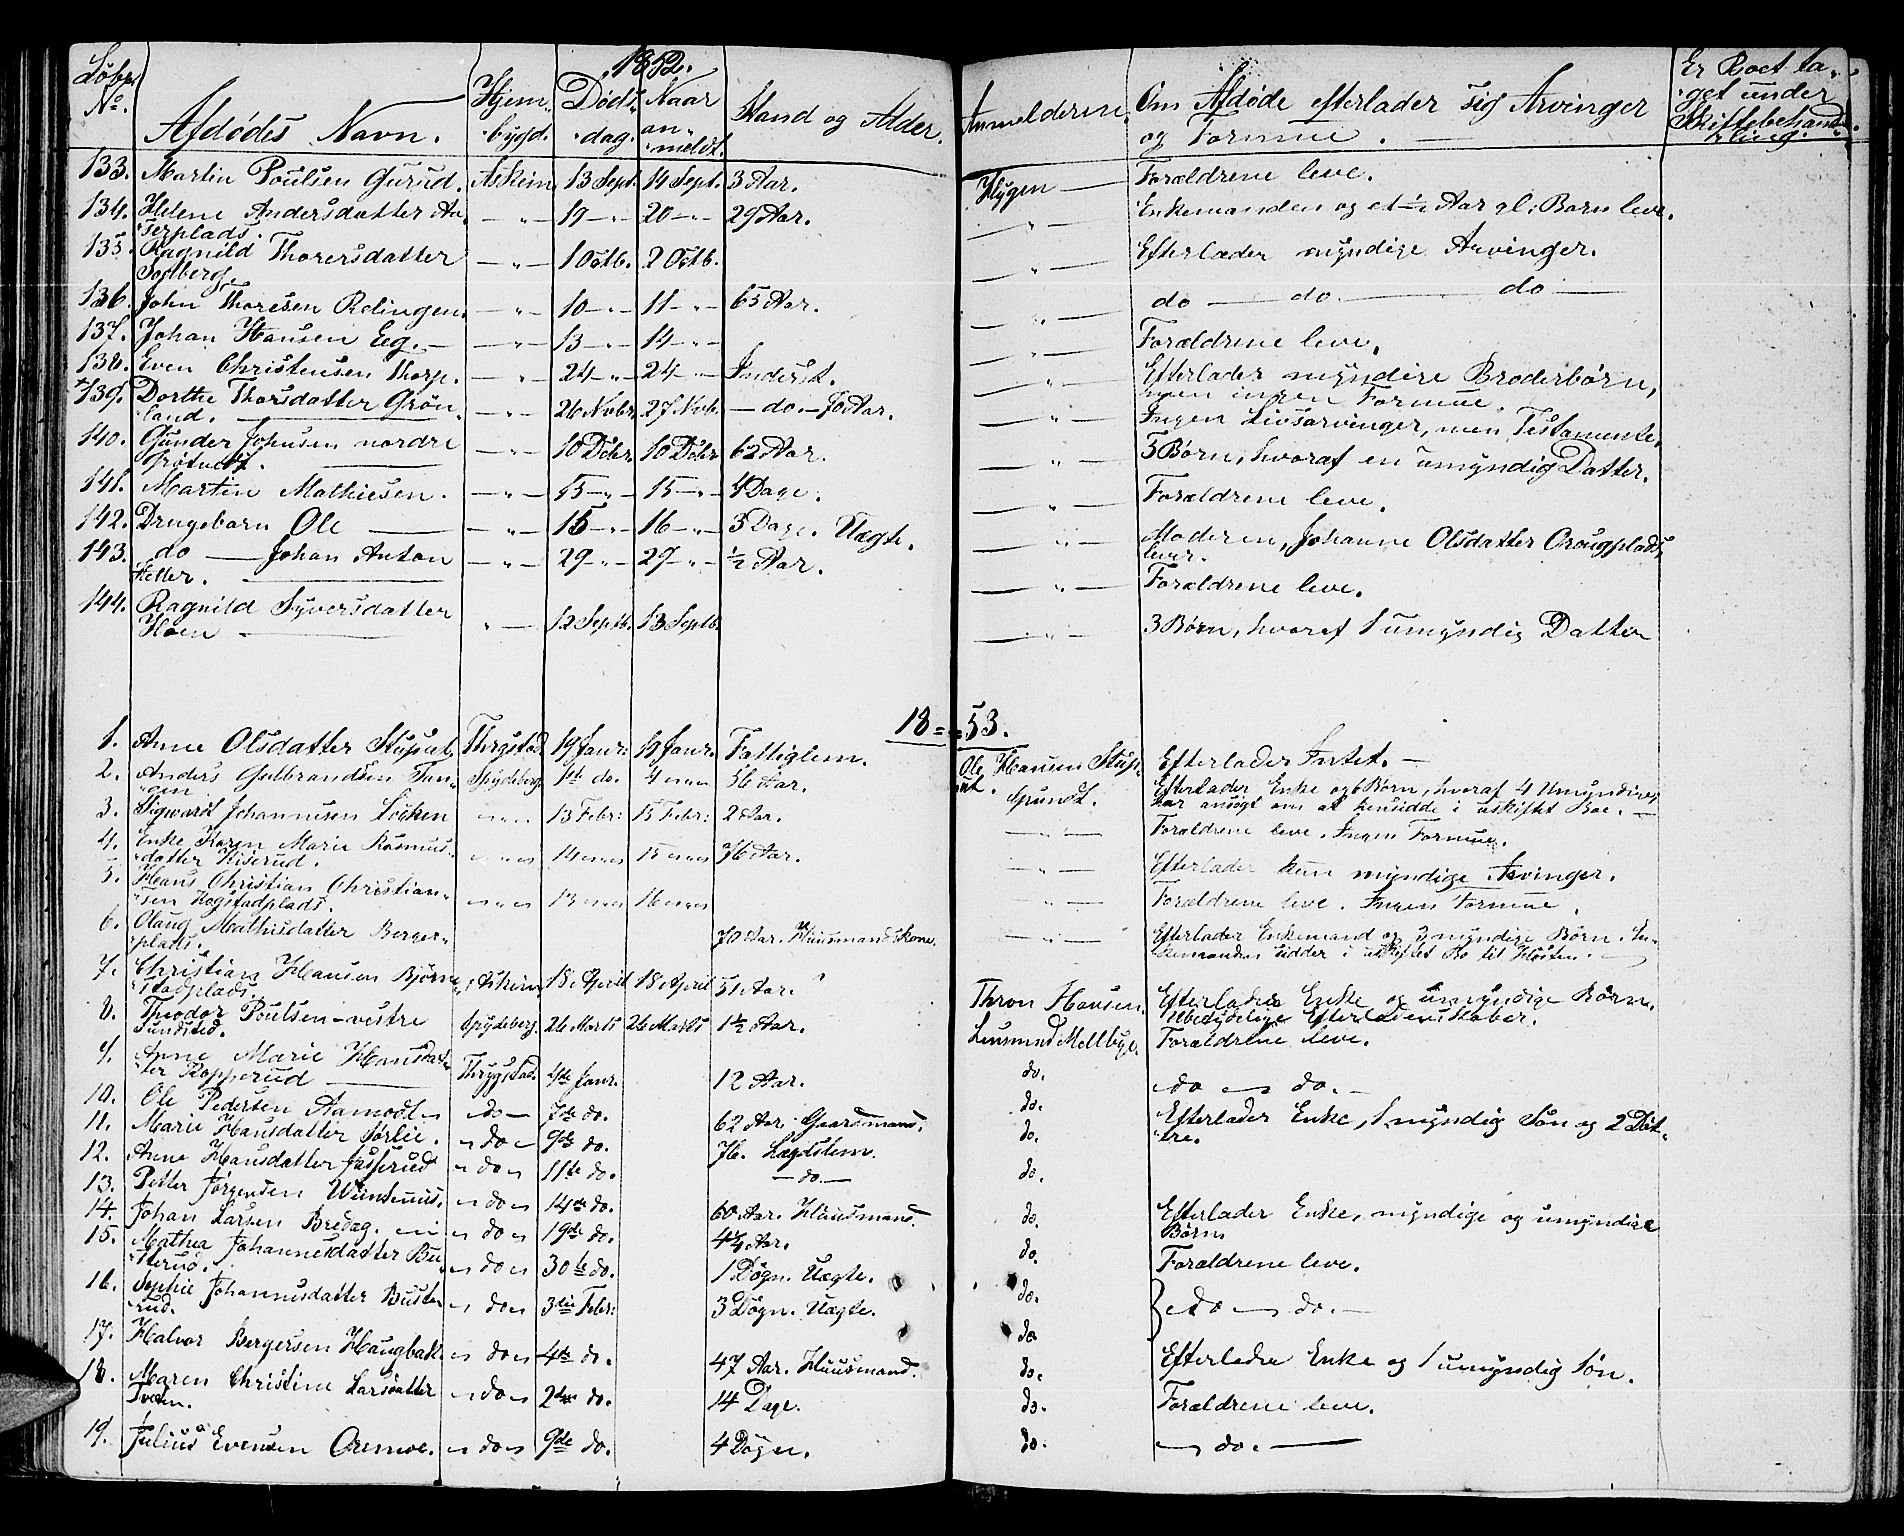 1852.
Løbe No. Afdødes Navn. Hjembygd. Dødsdag. Naar anmeldt. Stand og Alder. Anmelderne. Om Afdøde efterlader sig Arvinger og Formue. Er Boet taget under Skiftebehandling.
133. Martin Poulsen Gurud. Askim 13 Sept. 14 Sept. 3 Aar. Hygen Forældrene leve.
134. Helene Andersdatter 19 20 29 Aar. Enkemanden og et ½ Aar gl: Barn leve.
135. Ragnild Thorersdatter Solberg. 1 Octb. 2 Octb. Efterlader myndige Arvinger.
136. John Thoresen Relingen. 10 11 65 Aar. do do do
137. Johan Hansen Eeg. 13 14 Forældrene leve.
138. Even Christensen Thorp. 24 24 Inderst. Efterlader myndige Broderbørn, men ingen Formue.
139. Dorthe Thorsdatter Grønland. 26 Novbr. 27 Novb. do 70 Aar. Ingen Livsarvinger, men Testamente.
140. Gunder Johnsen nordre 10 Dcbr. 10 Dcbr 62 Aar. 5 Børn, hvoraf en umyndig Datter.
141. Martin Mathiesen. 15 15 4 Dage. Forældrene leve.
142. Drengebarn Ole 15 16 3 Dage. Uægte. Moderen, Johanne Olsdatter lever.
143. do Johan Anton 29 29 ½ Aar. Forældrene leve.
144. Ragnild Syversdatter Hoen 12 Septb. 13 Septb. 3 Børn, hvoraf 1 umyndig Datter
18 53.
1. Anne Olsdatter Stuput Thrygstad 19 Janr: 19 Janr: Fattiglem. Ole Hansen Stuput. Efterlader Intet.
2. Anders Gulbrandsen Spydeberg 1st do. 4 56 Aar. Grundt. Efterlader Enke og 6 Børn, hvoraf 4 Umyndige, har ansøgt om at hensidde i uskiftet Boe.
3. Sigvardt Johannesen Løken 13 Febr: 15 Febr: 2 Aar. Forældrene leve. Ingen Formue.
4. Enke Karen Marie Rasmusdatter 14 15 76 Aar. Efterlader kun myndige Arvinger.
5. Hans Christian Christiansen Kogstadplads. 13 16 Forældrene leve. Ingen Formue.
6. Olaug Mathisdatter Bergerplads. 70 Aar. Huusmandskone. Efterlader Enkemand og myndige Børn. Enkemanden sidder i uskiftet Bo til Høsten.
7. Christian Hansen Askim, 18 April 18 April 51 Aar. Thron Hansen. Efterlader Enke og umyndige Børn. Ubetydelige Efterladenskaber.
8. Theodor Poulsen vestre Sundsted. Spydeberg. 26 Marts 26 Marts 1½ Aar. Lensmand Mellbye. Forældrene leve.
9. Anne Marie Hansdatter Kopperud Thrygstad. 4de Janr. 12 Aar. do. do do.
10. Ole Pedersen Aamodt do 7de do. 62 Aar. Gaardmand. do. Efterlader Enke, 1 myndig Søn og 2 Døttre.
11. Marie Hansdatter Sørlie. do 9de do. 76. Lægdslem. do.
12. Anne Hansdatter do 11te do. do do.
13. Petter Jørgensen do 14de do. 60 Aar. Huusmand. do. Efterlader Enke, myndige og umyndige Børn
14. Johan Larsen Bredag. do 19de do. 4¼ Aar. do. Forældrene leve.
15. Mathea Johannesdatter Busterud. do 30te do. 1 Døgn. Uægte. do. do do.
16. Sophie Johannesdatter Busterud. do 3die Febr: 3 Døgn. Uægte. do
17. Halvor Bergersen Haugbak do 4de do. 47 Aar. Huusmand. do. Efterlader Enke og 1 umyndig Søn.
18. Maren Christine Larsdatter do 2den do. 14 Dage. do. Forældrene leve.
19. Julius Evensen do 9de do. 4 Døgn. do. do.